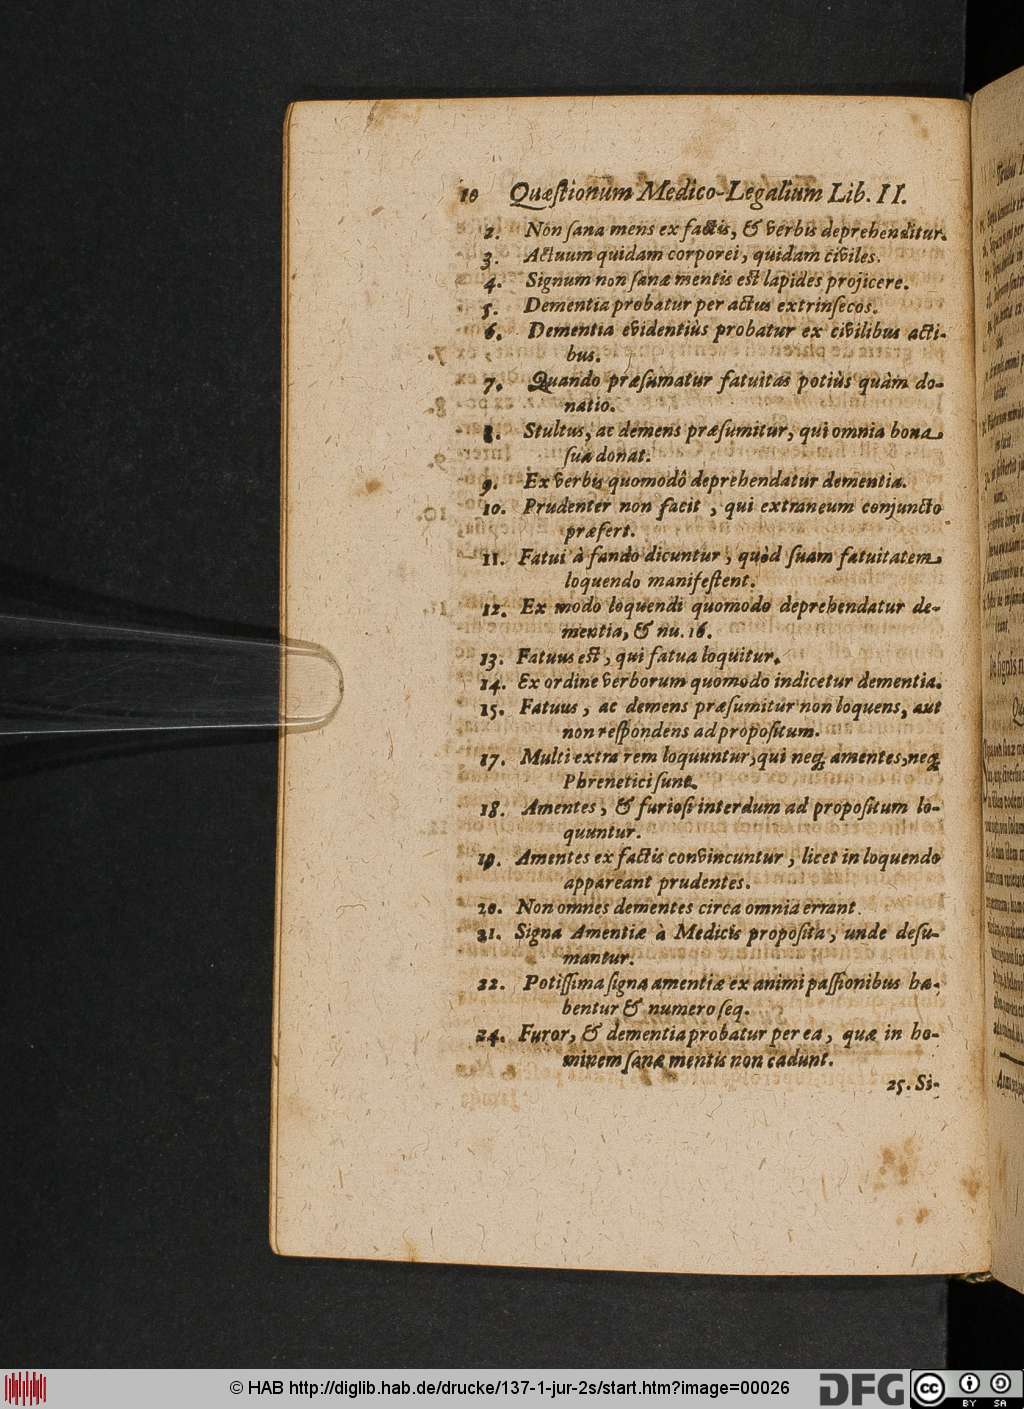 10 Quæſtionum Medico-Legalium Lib. II.
2. Non ſana mens ex factis, & verbis deprehenditur.
3. Actuum quidam corporei, quidam civiles.
4. Signum non ſanæ mentis eſt lapides projicere.
5. Dementia probatur per actus extrinſecos.
6. Dementia evidentiùs probatur ex civilibus acti-
bus.
7. Quando præſumatur fatuitas potiùs quàm do-
natio.
8. Stultus, ac demens præſumitur, qui omnia bona
ſua donat.
9. Ex verbis quomodô deprehendatur dementia.
10. Prudenter non facit, qui extraneum conjuncto
præfert.
11. Fatui à fando dicuntur, quòd ſuam fatuitatem
loquendo manifeſtent.
12. Ex modo loquendi quomodo deprehendatur de-
mentia, & nu. 16.
13. Fatuus eſt, qui fatua loquitur.
14. Ex ordine verborum quomodo indicetur dementia.
15. Fatuus, ac demens præſumitur non loquens, aut
non reſpondens ad propoſitum.
17. Multi extra rem loquuntur, qui neq́; amentes, neq́;
Phrenetici ſunt.
18. Amentes, & furioſi interdum ad propoſitum lo-
quuntur.
19. Amentes ex factis convincuntur, licet in loquendo
appareant prudentes.
20. Non omnes dementes circa omnia errant.
21. Signa Amentiæ à Medicis propoſita, unde deſu-
mantur.
22. Potiſſima ſigna amentiæ ex animi paſſionibus ha-
bentur & numero ſeq.
24. Furor, & dementia probatur per ea, quæ in ho-
minem ſanæ mentis non cadunt.
25. Si-
© HAB http://diglib.hab.de/drucke/137-1-jur-2s/start.htm?image=00026
DFG
CC BY SA